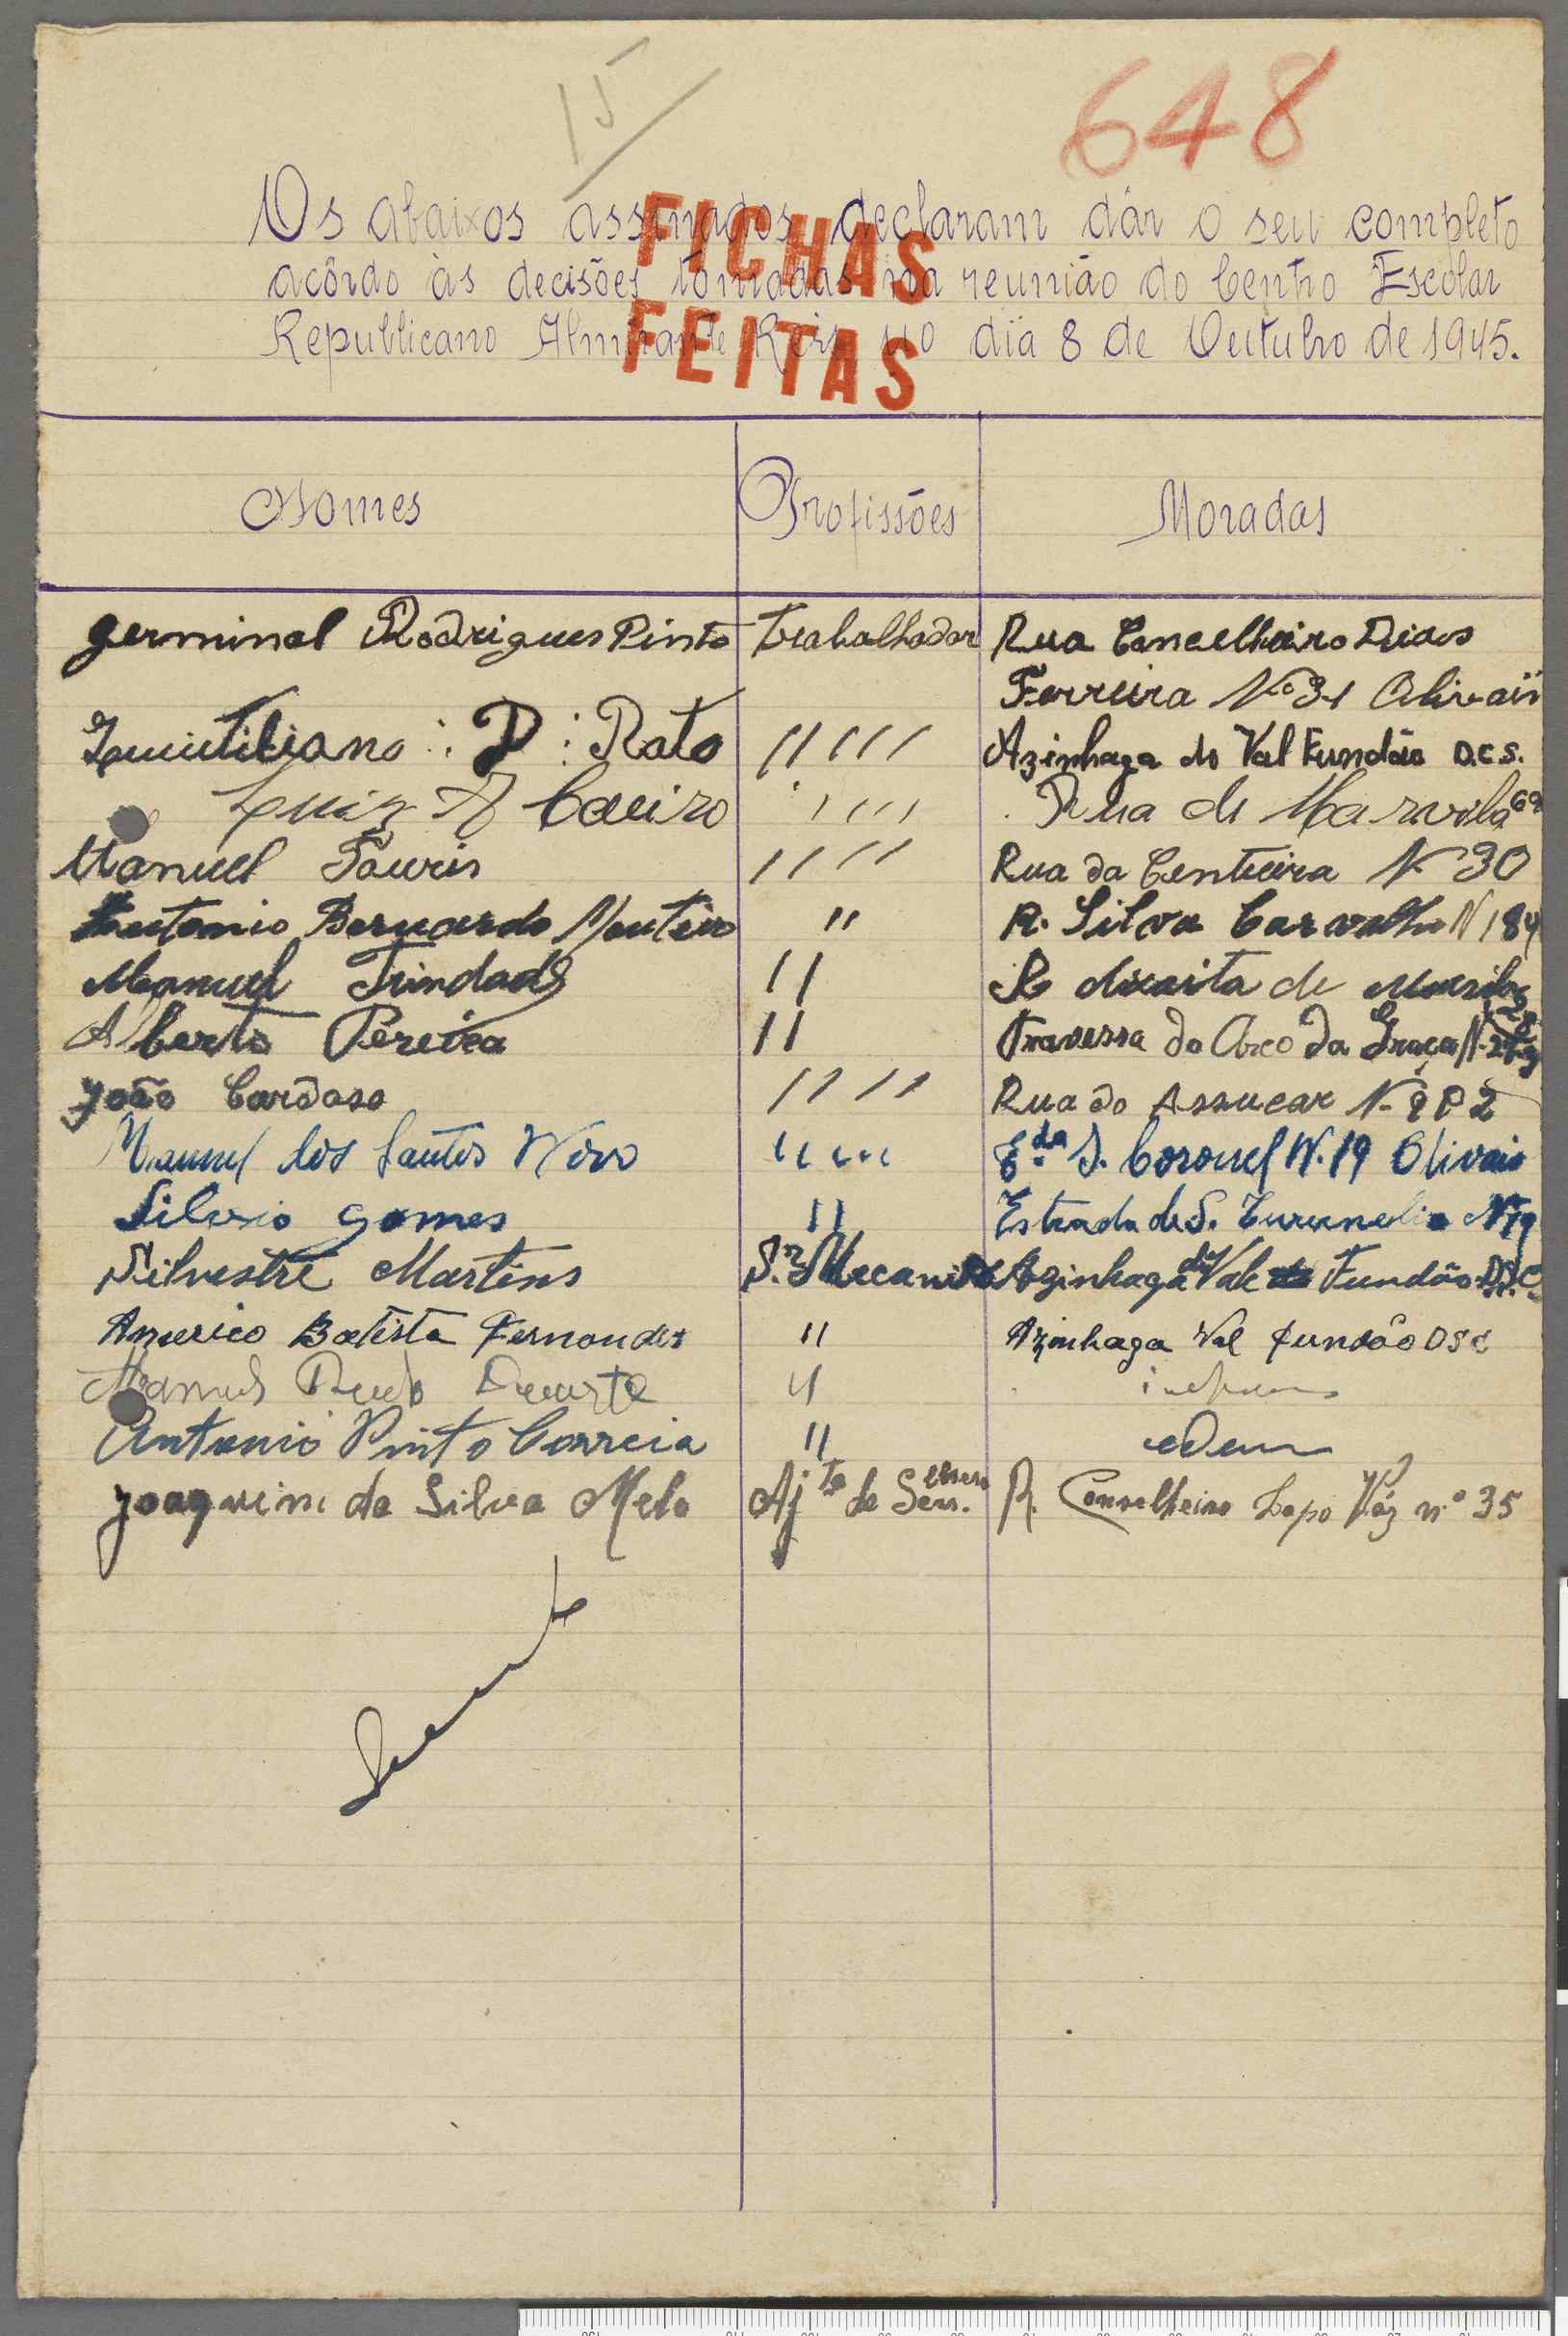 15
648
Os abaixos assinados, declaram dár o seu completo
acôrdo às decisões tomadas na reunião do Centro Escolar
Republicano Almirante Reis no dia 8 de Outubro de 1945.
FICHAS
FEITAS
Nomes Profissões Moradas
Germinal Rodrigues Pinto Trabalhador Rua Concelheiro Dias
Ferreira Nº 31 Olivais
P. Rato " " " Azinhaga do Val Fundão D.C.S.
Luiz A Caeiro " " Rua de Marvila 69
Manuel Touris " " Rua da Centieira N. 30
Antonio Bernardo Monteiro " R. Silva Carvalho N 184
Manuel Trindade " R direita de
Alberto Pereira " Travessa do Arco da Graça N.
João Cardoso " " Rua do Assucar N.
Manuel dos Santos Novo " " E.da S. Coronel N. 19 Olivais
Silverio Gomes " Estrada de S. N 19
Silvestre Martins S. Mecanico Azinhaga do Vale Fundão D.S.C.
Americo Batista Fernandes " Azinhaga Val fundão D S C
Manuel Duarte "
Antonio Pinto Correia " edem
Joaquim da Silva Melo Aj.te de Serr. R. Conselheiro Lopo Váz nº 35